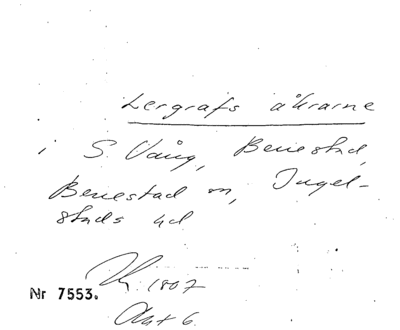 Lergrafs åkrarne
i S. Vång, Benestad,
Benestad sn, Ingel-
stads hd
1807
Nr 7553.
Akt 6.